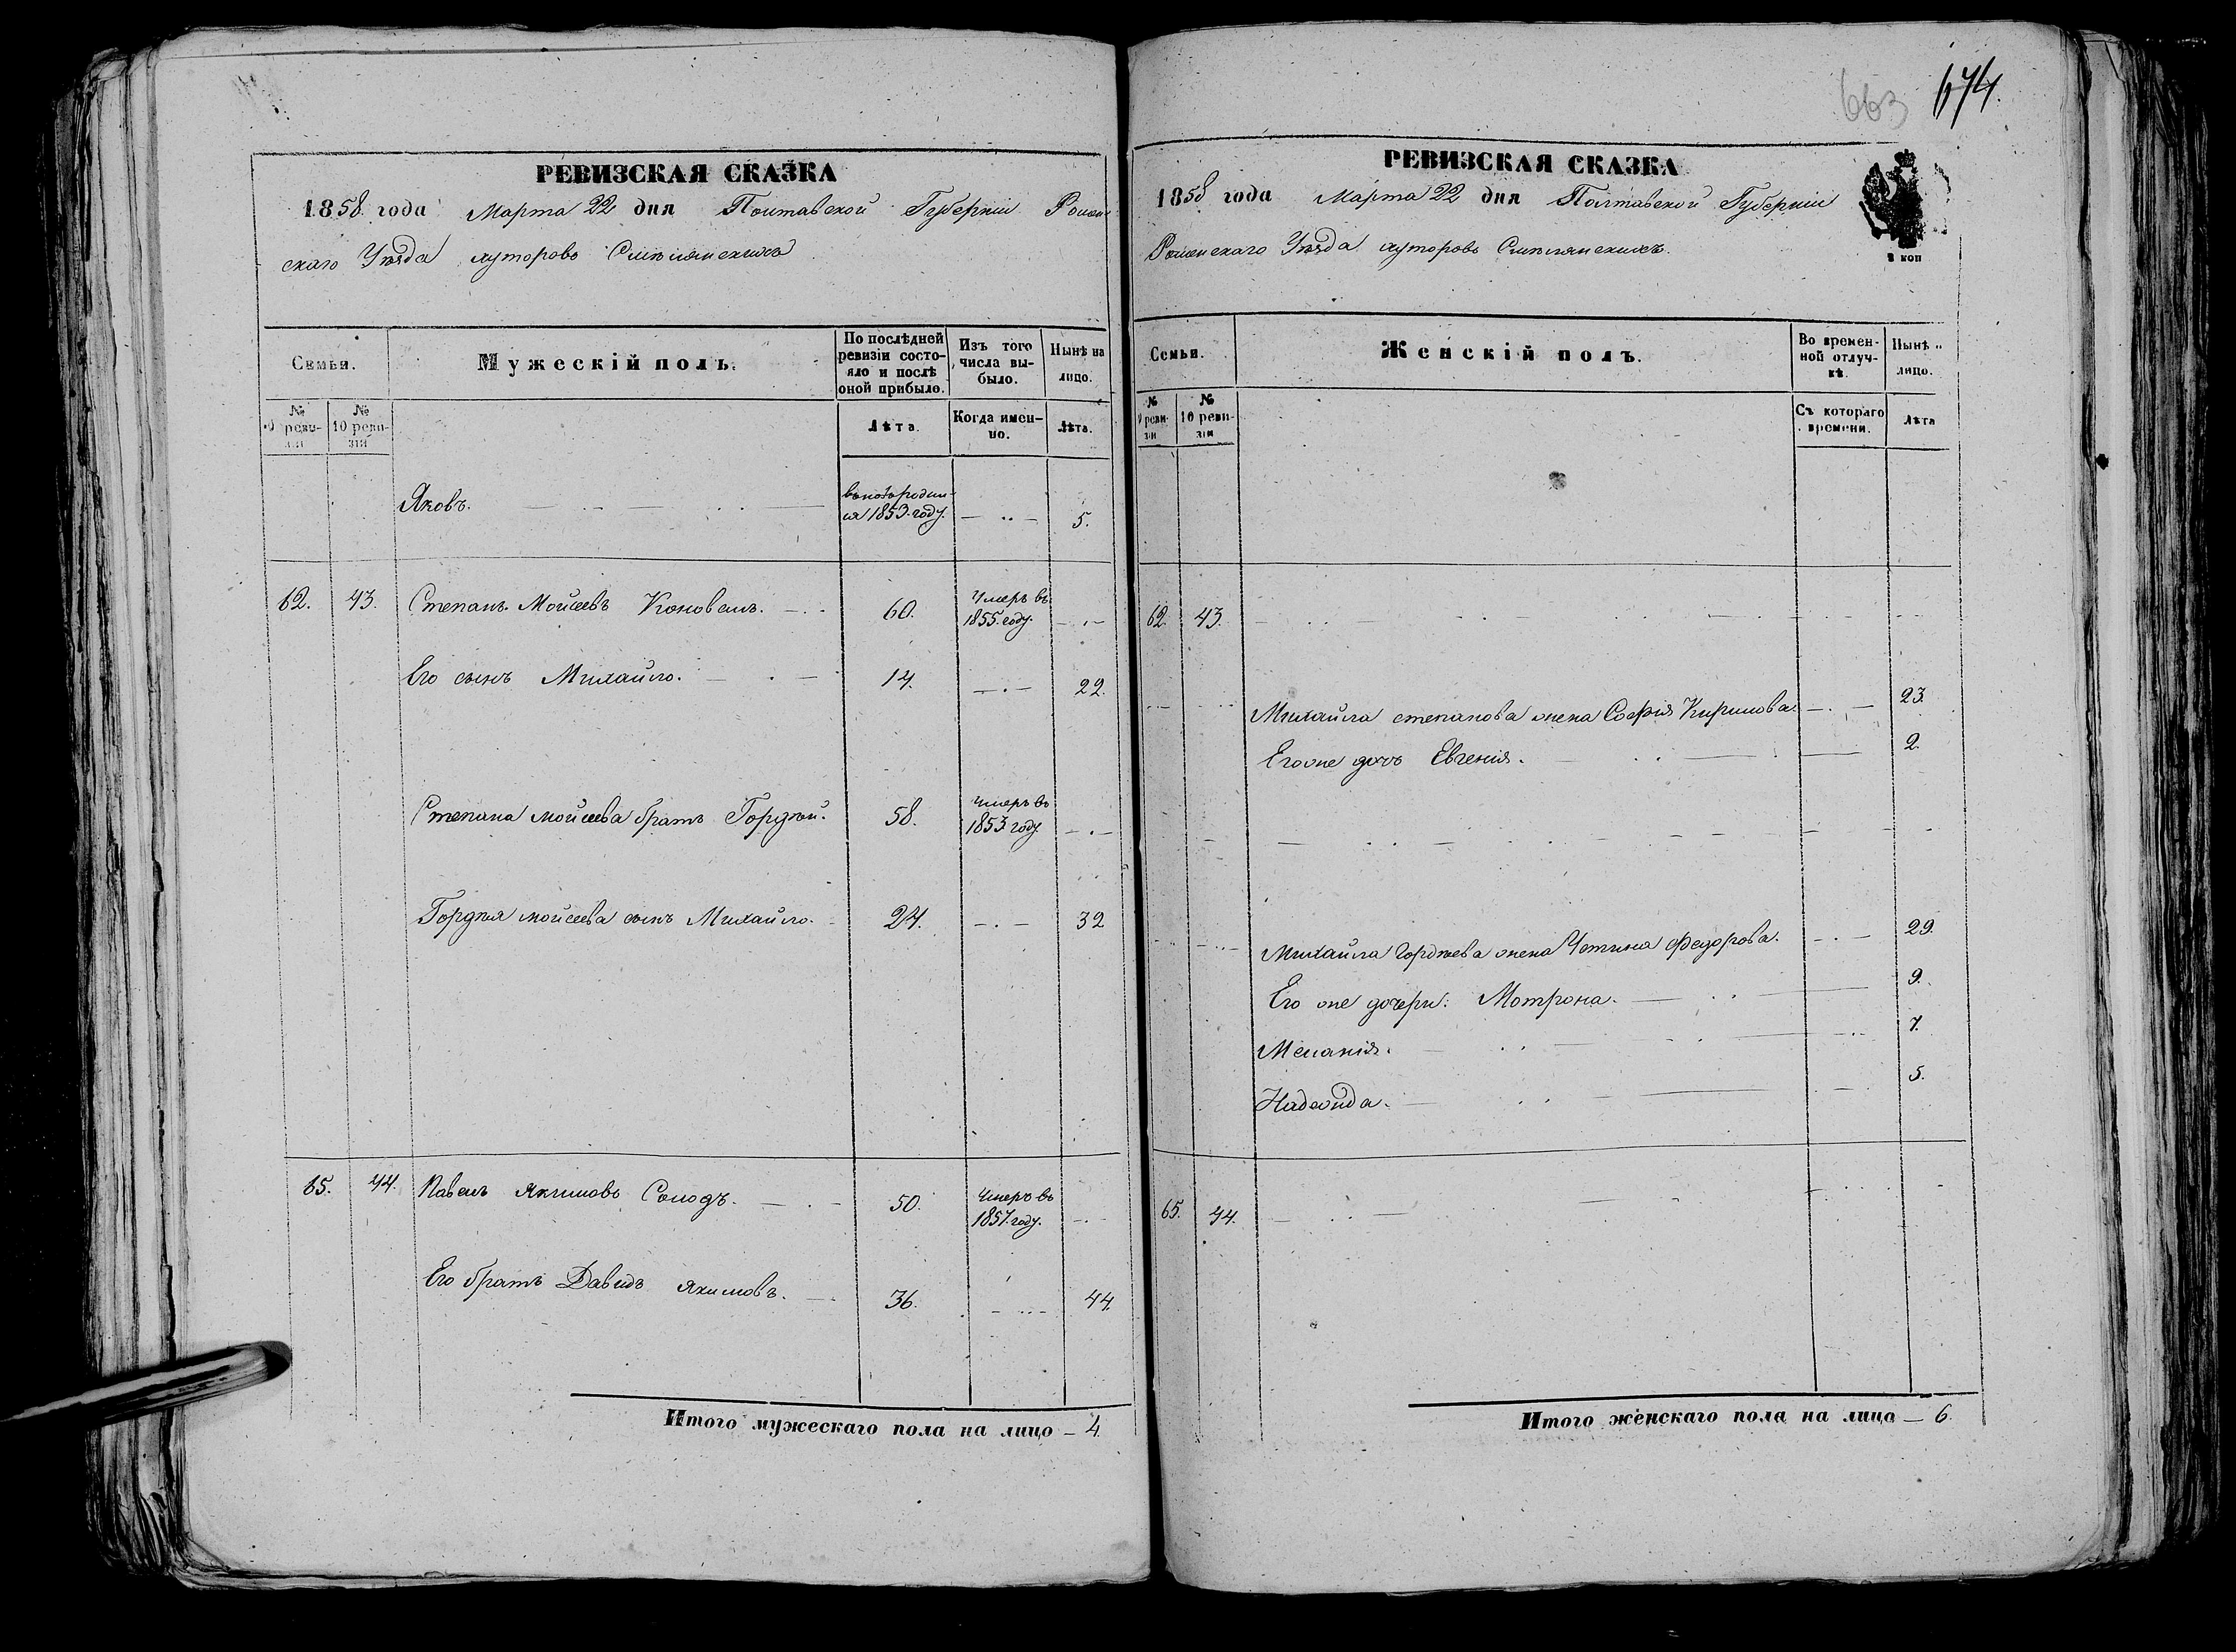 663 674.
РЕВИЗСКАЯ СКАЗКА
1858 года Марта 22 дня Полтавской Губерніи Ромен
скаго Уѣзда хуторовъ Смѣлянскихъ
Семьи.
Мужескій полъ.
По послѣдней ревизіи состояло и послѣ оной прибыло.
Изъ того числа выбыло.
Нынѣ на лицо.
№ 9 ревизіи
№ 10 ревизіи
Лѣта.
Когда именно.
Лѣта.
Яковъ. 5.
1853. году.
62. 43. Степанъ Мойсеевъ Коновалъ. 60. Умеръ въ 1855. году.
Его сынъ Михайло. 14. 22.
Степана мойсеева братъ Гордѣй. 58. Умеръ въ 1853. году
Гордѣя мойсеева сынъ Михайло. 24. 32
65. 44. Павелъ Якимовъ Солодъ. 50. Умеръ въ 1857. году.
Его братъ Давидъ Якимовъ. 36. 44.
Итого мужескаго пола на лицо – 4.
РЕВИЗСКАЯ СКАЗКА
1858 года Марта 22 дня Полтавской Губерніи
Роменскаго Уѣзда хуторовъ Смѣлянскихъ.
коп
Семьи.
Женскій полъ.
Во временной отлучкѣ.
Нынѣ на лицо.
№ 9 ревизіи
№ 10 ревизіи
Съ котораго времени.
Лѣта
62. 43.
Михайла степанова жена Софія Кирилова. 23.
Егоже дочь Евгенія. 2.
Михайла Гордѣева жена Устина Федорова. 29.
Его же дочери: Мотрона. 9.
Меланія. 7.
Надежда. 5.
65. 44.
Итого женскаго пола на лицо – 6.